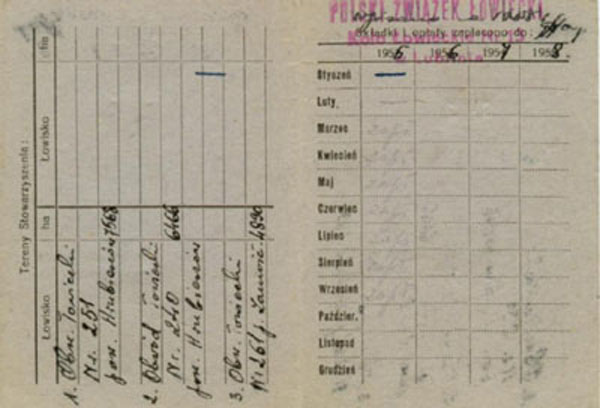 Tereny Stowarzyszenia:
Łowisko
ha
Łowisko
ha
1. Obw. Łowiecki
Nr. 251
pow. Hrubieszów 7568
2. Obwód Łowiecki
Nr. 240 6466
pow. Hrubieszów
3. Obw. Łowiecki
Nr 261 p. Zamość 4890
POLSKI ZWIĄZEK ŁOWIECKI
składki i opłaty zapłacono do:
1955 1956 1957 1958
Styczeń
Luty
Marzec
Kwiecień
Maj
Czerwiec
Lipiec
Sierpień
Wrzesień
Paździer.
Listopad
Grudzień